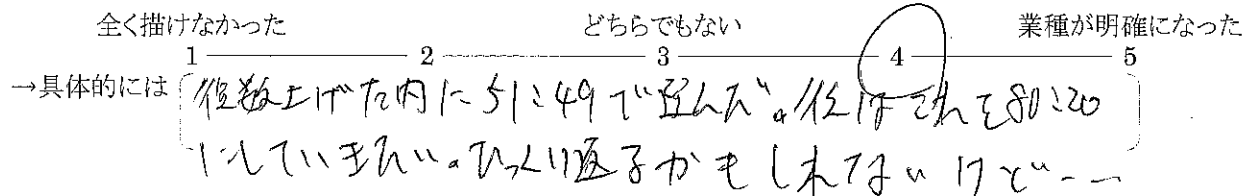 全く描けなかった どちらでもない 業種が明確になった
1 2 3 4 5
→具体的には 複数上げた内に51:49で選んだ。後はこれを80:20
にしていきたい。ひっくり返るかもしれないけど…